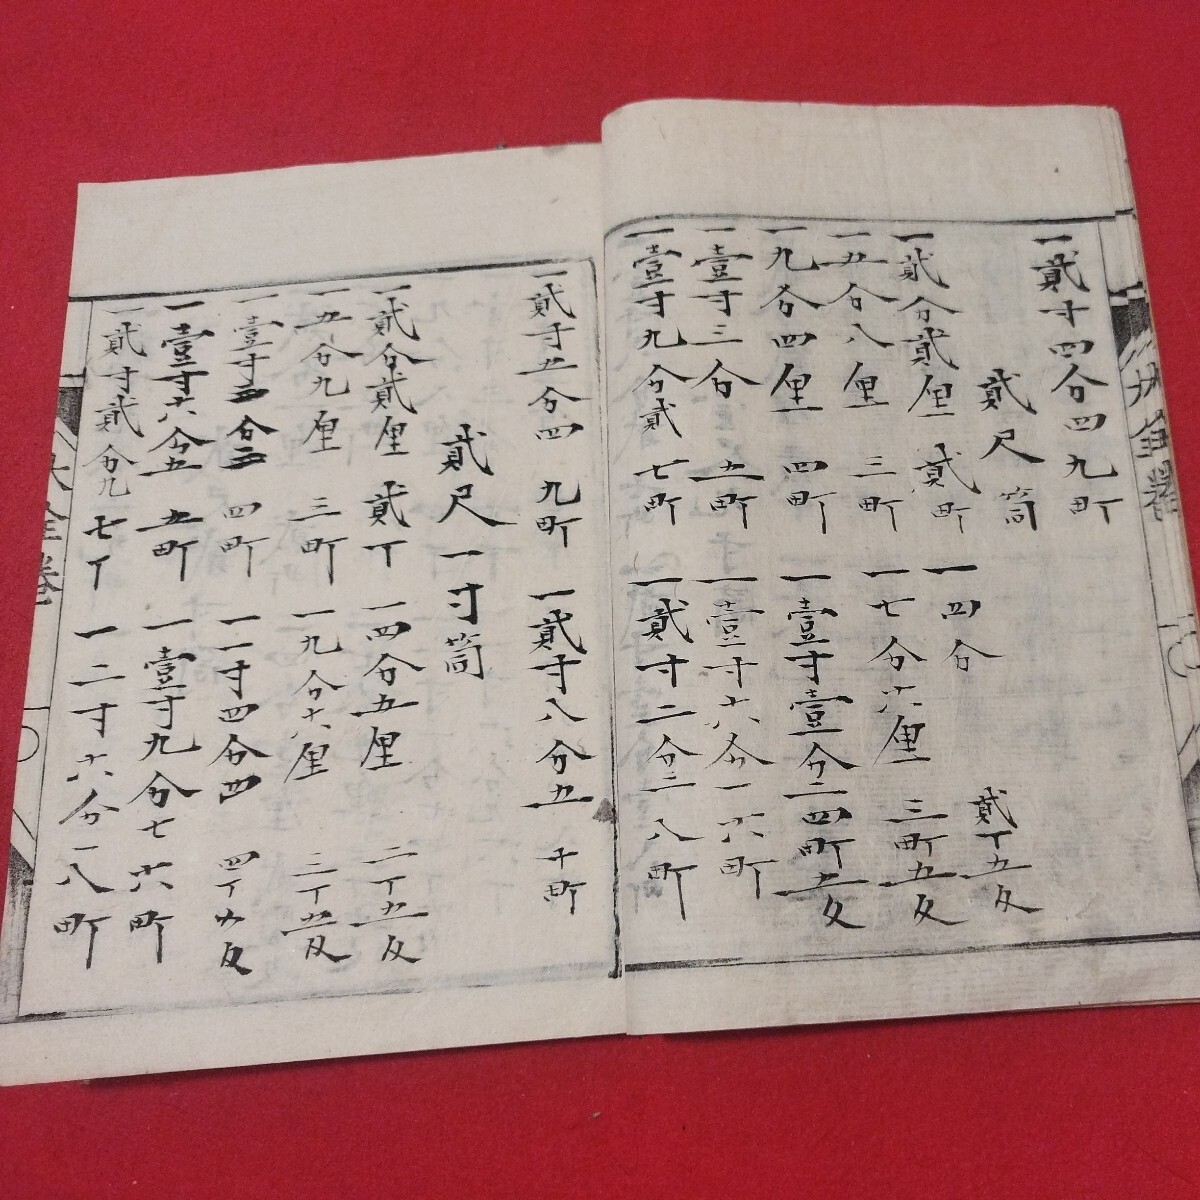 一貳寸四分四九町
貳尺筒
一四分 貳丁五反
一貳分貳厘 貳町
一七分六厘 三町五反
一五分八厘 三町
一壹寸壹分二四町五反
一九分四厘 四町
一壹寸六分一六町
一壹寸三分 五町
一貳寸二分三八町
一壹寸九分貳七町
一貳寸五分四 九町
一貳寸八分五 十町
貳尺一寸筒
一貳分貳厘 貳丁
一四分五厘 二丁五反
一五分九厘 三町
一九分六厘 三丁五反
一壹寸三分三 四町
一一寸四分四 四丁五反
一壹寸六分五 五町
一壹寸九分七六町
一貳寸貳分九 七丁
一二寸六分一八町